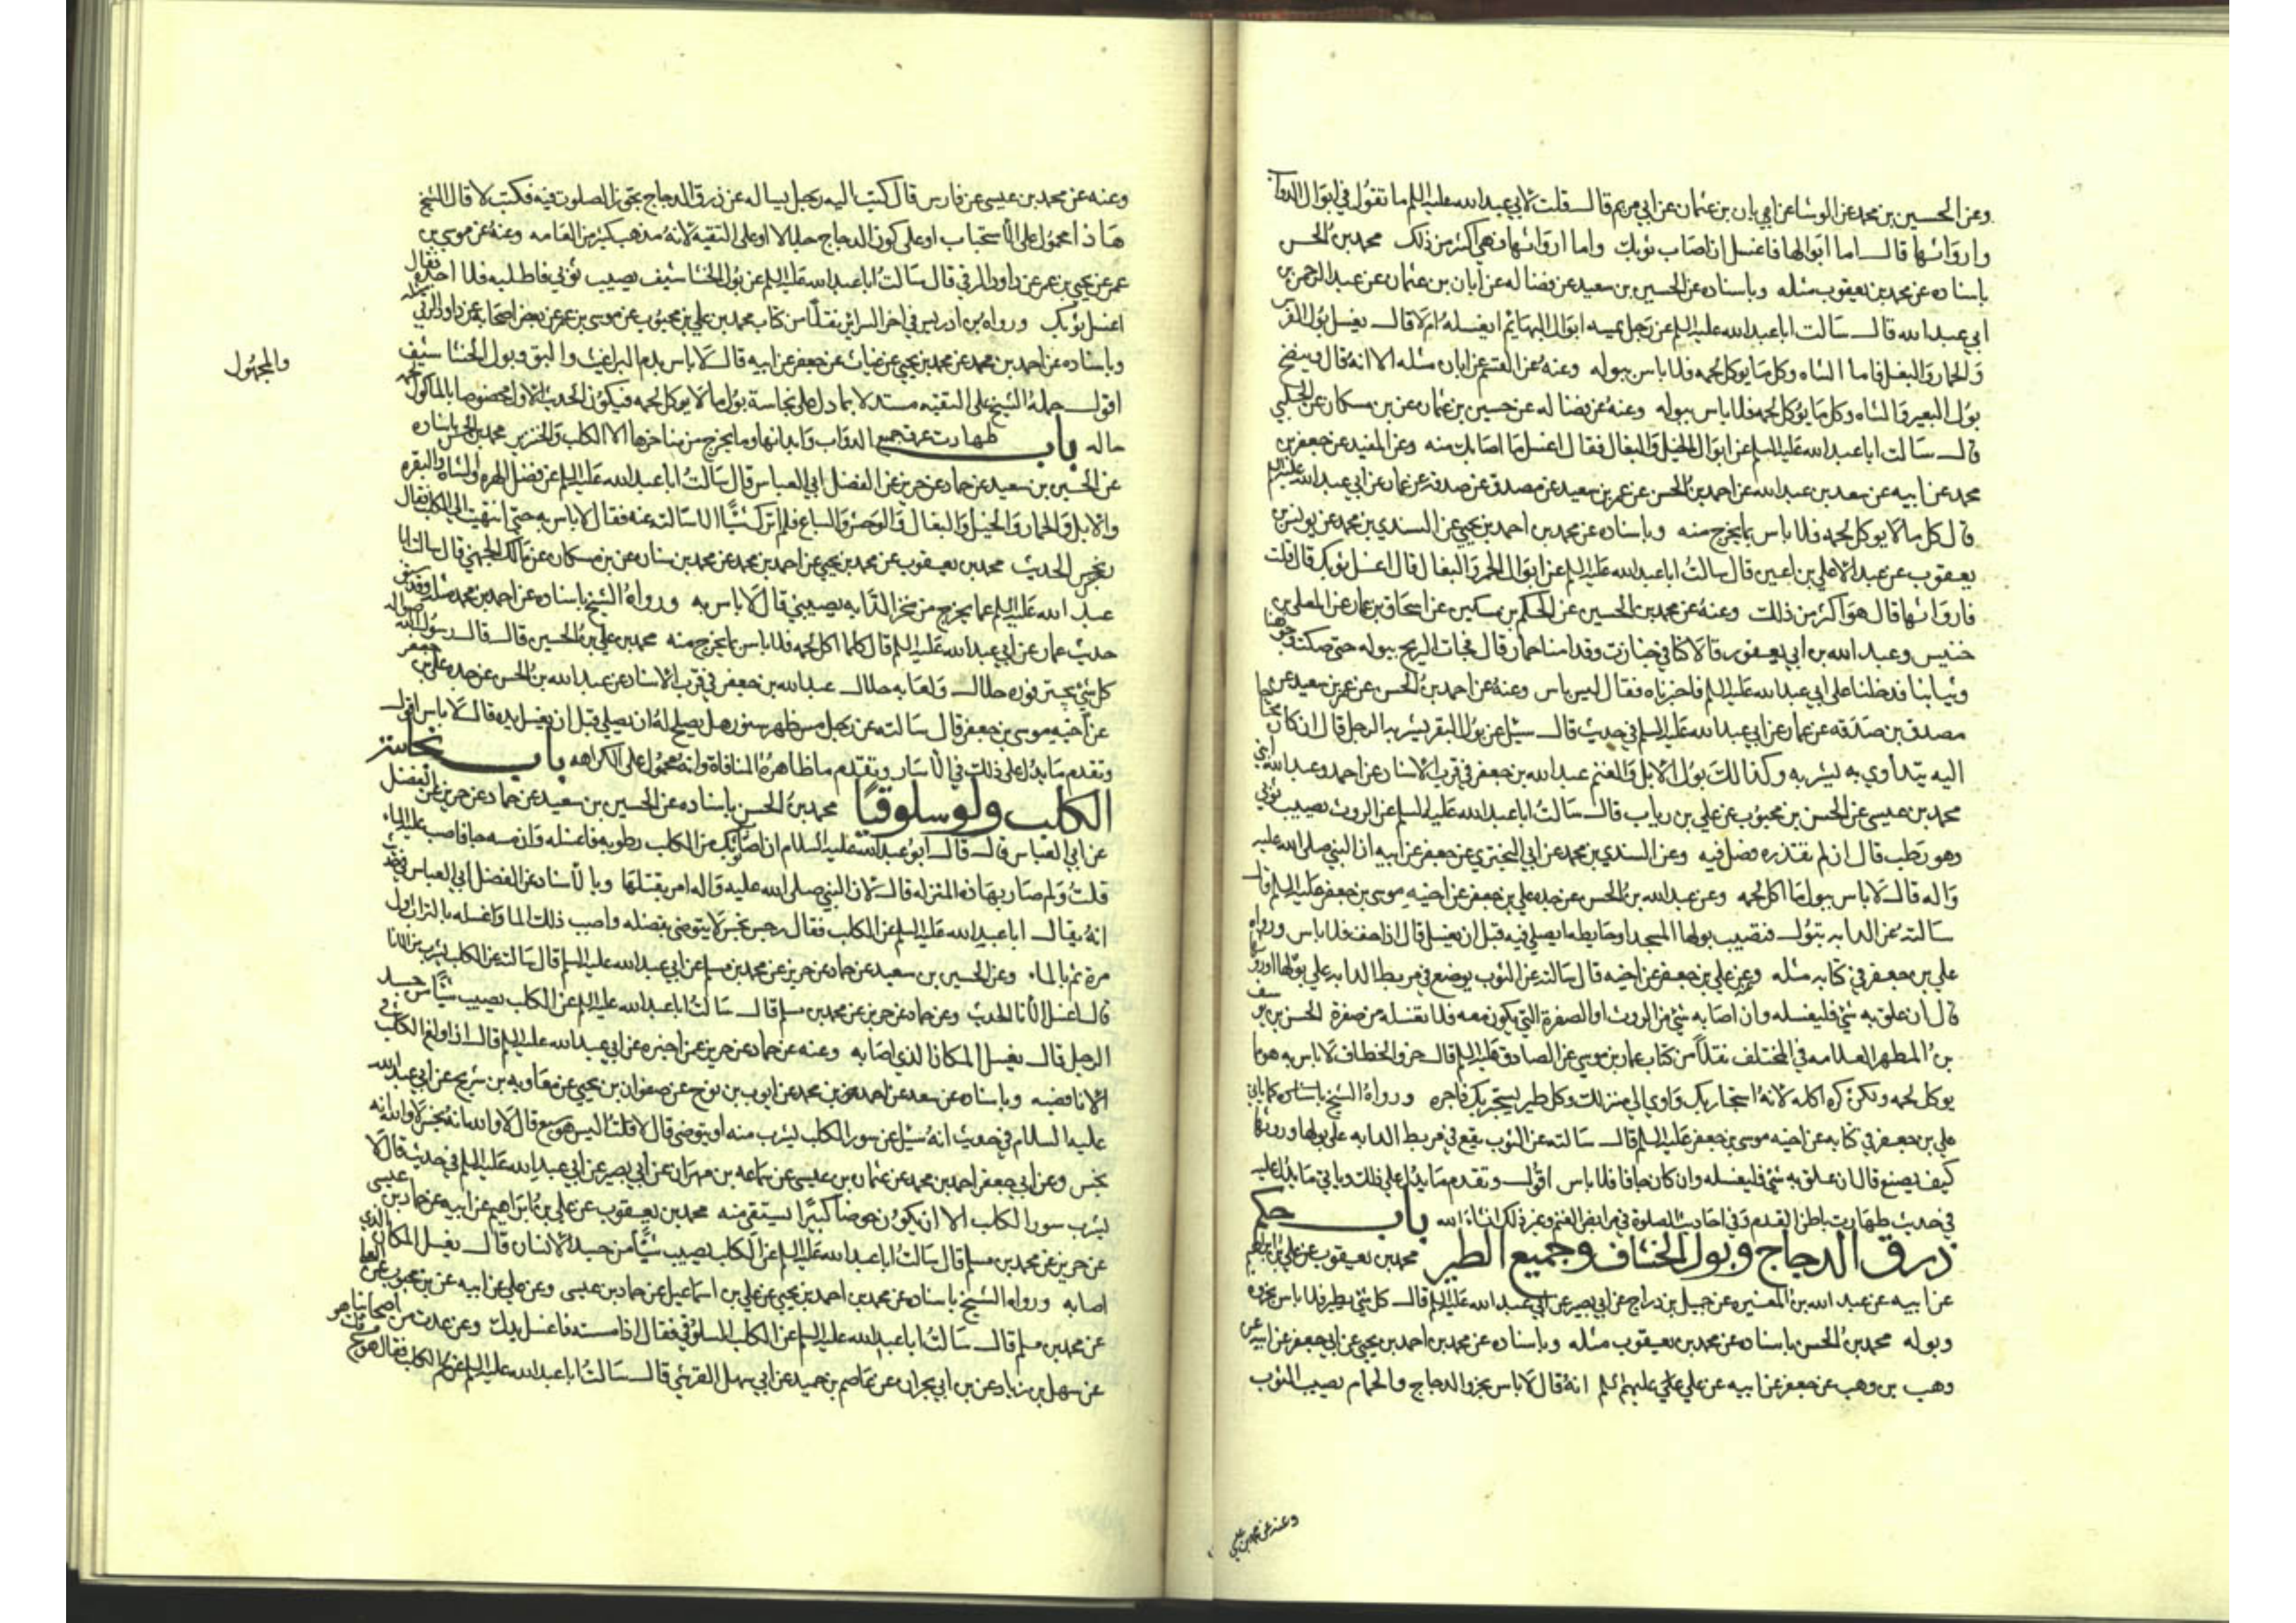 وعن الحسين بن محمد عن الوشا عن ابان بن عثمان عن ابي مريم قال قلت لابي عبدالله عليه السلم ما تقول في ابوال الدواب
واروائها قال اما ابوالها فاغسل ان اصاب ثوبك واما اروائها فهي اكثر من ذلك محمد بن الحسن
باسناده عن محمد بن يعقوب مثله وباسناده عن الحسين بن سعيد عن فضاله عن ابان بن عثمان عن عبدالرحمن بن
ابي عبدالله قال سالت اباعبدالله عليه السلم عن رجل يمسه ابوال البهائم ايغسله ام لا قال يغسل بول الفرس
والحمار والبغل فاما الشاه وكل ما يوكل لحمه فلا باس ببوله وعنه عن القسم عن ابان مثله الا انه قال وينضح
بول البعير والشاه وكل ما يوكل لحمه فلا باس ببوله وعنه عن فضاله عن حسين بن عثمان عن بن مسكان عن الحلبي
قال سالت اباعبدالله عليه السلم عن ابوال الخيل والبغال فقال اغسل ما اصابك منه وعن المفيد عن جعفر بن
محمد عن ابيه عن سعد بن عبدالله عن احمد بن الحسن عن عمر بن سعيد عن مصدق عن صدقه عن عمار عن ابي عبدالله عليه السلم
قال كل مالا يوكل لحمه فلا باس بما يخرج منه وباسناده عن محمد بن احمد بن يحيى عن السندي بن محمد عن يونس بن
يعقوب عن عبدالاعلى بن اعين قال سالت اباعبدالله عليه السلم عن ابوال الحمر والبغال قال اغسل ثوبك قال قلت
فاروائها قال هو اكثر من ذلك وعنه عن محمد بن الحسين عن الحكم بن مسكين عن اسحاق بن عمار عن المعلى بن
خنيس وعبدالله بن ابي يعفور قالا كنا في جنازت وقدامنا حمار قال فجات الريح ببوله حتى صكت وجوهنا
وثيابنا فدخلنا على ابي عبدالله عليه السلم فاخبرناه فقال ليس باس وعنه عن احمد بن الحسن عن عمر بن سعيد عن
مصدق بن صدقه عن عمار عن ابي عبدالله عليه السلم في حديث قال سئل عن بول البقر يشربه الرجل قال ان كان محتاجا
اليه يتداوي به يشربه وكذالك بول الابل والغنم عبدالله بن جعفر في قرب الاسناد عن احمد وعبدالله ابني
محمد بن عيسى عن الحسن بن محبوب عن علي بن رياب قال سالت اباعبدالله عليه السلم عن الروث يصيب ثوبي
وهو رطب قال ان لم تقذره فصل فيه وعن السندي بن محمد عن ابي البختري عن جعفر عن ابيه ان النبي صلى الله عليه
واله قال لا باس ببول ما اكل لحمه وعن عبدالله بن الحسن عن جده علي بن جعفر عن اخيه موسى بن جعفر عليه السلم قال
سالته عن الدابه تبول فتصيب بولها المسجد او حايطه ايصلي فيه قبل ان يغسل قال اذا جف فلا باس ورواه
علي بن جعفر في كتابه مثله وعن علي بن جعفر عن اخيه قال سالته عن الثوب يوضع في مربط الدابه على بولها او روثها
قال ان علق به شي فليغسله وان اصابه شي من الروث او الصفرة التي يكون معه فلا تغسله من صفرة الحسن بن يوسف
بن المطهر العلامه في المختلف نقلا من كتاب عمار بن موسى عن الصادق عليه السلم قال خرو الخطاف لا باس به هو مما
يوكل لحمه ولكن كره اكله لانه استجار بك واوي الي منزلك وكل طير يستجير بك فاجره ورواه الشيخ باسناده كما ياتي
علي بن جعفر في كتابه عن اخيه موسى بن جعفر عليه السلم قال سالته عن الثوب يقع في مربط الدابه على بولها وروثها
كيف يصنع قال ان علق به شي فليغسله وان كان جافا فلا باس اقول وتقدم ما يدل على ذلك وياتي ما يدل عليه
في حديث طهارت باطن القدم وفي احاديث الصلوة في مرابض الغنم وغير ذلك انشاء الله باب حكم
ذرق الدجاج وبول الخشاف وجميع الطير محمد بن يعقوب عن علي بن ابراهيم
عن ابيه عن عبدالله بن المغيره عن جميل بن دراج عن ابي بصير عن ابي عبدالله عليه السلم قال كل شي يطير فلا باس بخروه
وبوله محمد بن الحسن باسناده عن محمد بن يعقوب مثله وباسناده عن محمد بن احمد بن يحيى عن ابي جعفر عن ابيه عن
وهب بن وهب عن جعفر عن ابيه عن علي عليهم السلم انه قال لا باس بخرو الدجاج والحمام يصيب الثوب
وعنه عن محمد بن عيسى
وعنه عن محمد بن عيسى عن فارس قال كتب اليه رجل يساله عن ذرق الدجاج يجوز الصلوت فيه فكتب لا قال الشيخ
هاذا محمول على الاستحباب او على كون الدجاج جلالا او على التقيه لانه مذهب كثير من العامه وعنه عن موسى بن
عمر عن يحيى بن عمر عن داود الرقي قال سالت اباعبدالله عليه السلم عن بول الخشاشيف يصيب ثوبي فاطلبه فلا اجده فقال
اغسل ثوبك ورواه بن ادريس في اخر السرائر نقلا من كتاب محمد بن علي بن محبوب عن موسى بن عمر عن بعض اصحابه عن داود الرقي مثله
وباسناده عن احمد بن محمد عن محمد بن يحيى عن غياث عن جعفر عن ابيه قال لا باس بدم البراغيث والبق وبول الخشاشيف
والمجهول
اقول حمله الشيخ على التقيه مستدلا بما دل على نجاسة بول مالا يوكل لحمه فيكون الحديث الاول مخصوصا بالماكول لحمه
حاله باب طهارت عرق جميع الدواب وابدانها وما يخرج من مناخرها الا الكلب والخنزير محمد بن الحسن باسناده
عن الحسين بن سعيد عن حماد عن حريز عن الفضل ابي العباس قال سالت اباعبدالله عليه السلم عن فضل الهره والشاه والبقره
والابل والحمار والخيل والبغال والوحش والسباع فلم اترك شيئا الا سالته عنه فقال لا باس به حتى انتهيت الى الكلب فقال
رجس نجس الحديث محمد بن يعقوب عن محمد بن يحيى عن احمد بن محمد عن محمد بن سنان عن بن مسكان عن مالك الجهني قال سالت ابا
عبدالله عليه السلم عما يخرج من منخر الدابه يصيبني قال لا باس به ورواه الشيخ باسناده عن احمد بن محمد مثله وقد سبق
حديث عمار عن ابي عبدالله عليه السلم قال كلما اكل لحمه فلا باس بما يخرج منه محمد بن علي بن الحسين قال قال رسول الله صلى الله
كل شي يجتر فسوره حلال ولعابه حلال عبدالله بن جعفر في قرب الاسناد عن عبدالله بن الحسن عن جده علي بن جعفر
عن اخيه موسى بن جعفر قال سالته عن رجل مس ظهر سنور هل يصلح له ان يصلي قبل ان يغسل يده قال لا باس اقول
وتقدم ما يدل على ذلك في الاسار وتقدم ما ظاهره المنافاة وانه محمول على الكراهه باب نجاسة
الكلب ولو سلوقيا محمد بن الحسن باسناده عن الحسين بن سعيد عن حماد عن حريز عن الفضل
عن ابي العباس قال قال ابو عبدالله عليه السلام ان اصاب ثوبك من الكلب رطوبه فاغسله وان مسه جافا فاصبب عليه الماء
قلت ولم صار بهاذه المنزله قال لان النبي صلى الله عليه واله امر بقتلها وبالاسناد عن الفضل ابي العباس في حديث
انه سال اباعبدالله عليه السلم عن الكلب فقال رجس نجس لا يتوضى بفضله واصبب ذلك الما واغسله بالتراب اول
مرة ثم بالماء وعن الحسين بن سعيد عن حماد عن حريز عن محمد بن مسلم عن ابي عبدالله عليه السلم قال سالته عن الكلب يشرب من الانا
قال اغسل الانا الحديث وعن حماد عن حريز عن محمد بن مسلم قال سالت اباعبدالله عليه السلم عن الكلب يصيب شيئا من جسد
الرجل قال يغسل المكان الذي اصابه وعنه عن حماد عن حريز عمن اخبره عن ابي عبدالله عليه السلم قال اذا ولغ الكلب في
الانا فصبه وباسناده عن سعد عن احمد بن محمد عن ايوب بن نوح عن صفوان بن يحيى عن معاويه بن شريح عن ابي عبدالله
عليه السلام في حديث انه سئل عن سور الكلب يشرب منه او يتوضى قال لا قلت اليس هو سبع قال لا والله انه نجس لا والله انه
نجس وعن ابي جعفر احمد بن محمد عن عثمان بن عيسى عن سماعه بن مهران عن ابي بصير عن ابي عبدالله عليه السلم في حديث قال لا
يشرب سور الكلب الا ان يكون حوضا كبيرا يستقى منه محمد بن يعقوب عن علي بن ابراهيم عن ابيه عن حماد بن عيسى
عن حريز عن محمد بن مسلم قال سالت اباعبدالله عليه السلم عن الكلب يصيب شيئا من جسد الانسان قال يغسل المكان الذي
اصابه ورواه الشيخ باسناده عن محمد بن احمد بن يحيى عن علي بن اسماعيل عن حماد بن عيسى وعن علي عن ابيه عن بن محبوب عن العلا
عن محمد بن مسلم قال سالت اباعبدالله عليه السلم عن الكلب السلوقي فقال اذا مسسته فاغسل يدك وعن عدت من اصحابنا
عن سهل بن زياد عن بن ابي نجران عن عاصم بن حميد عن ابي سهل القرشي قال سالت اباعبدالله عليه السلم عن لحم الكلب فقال هو مسخ